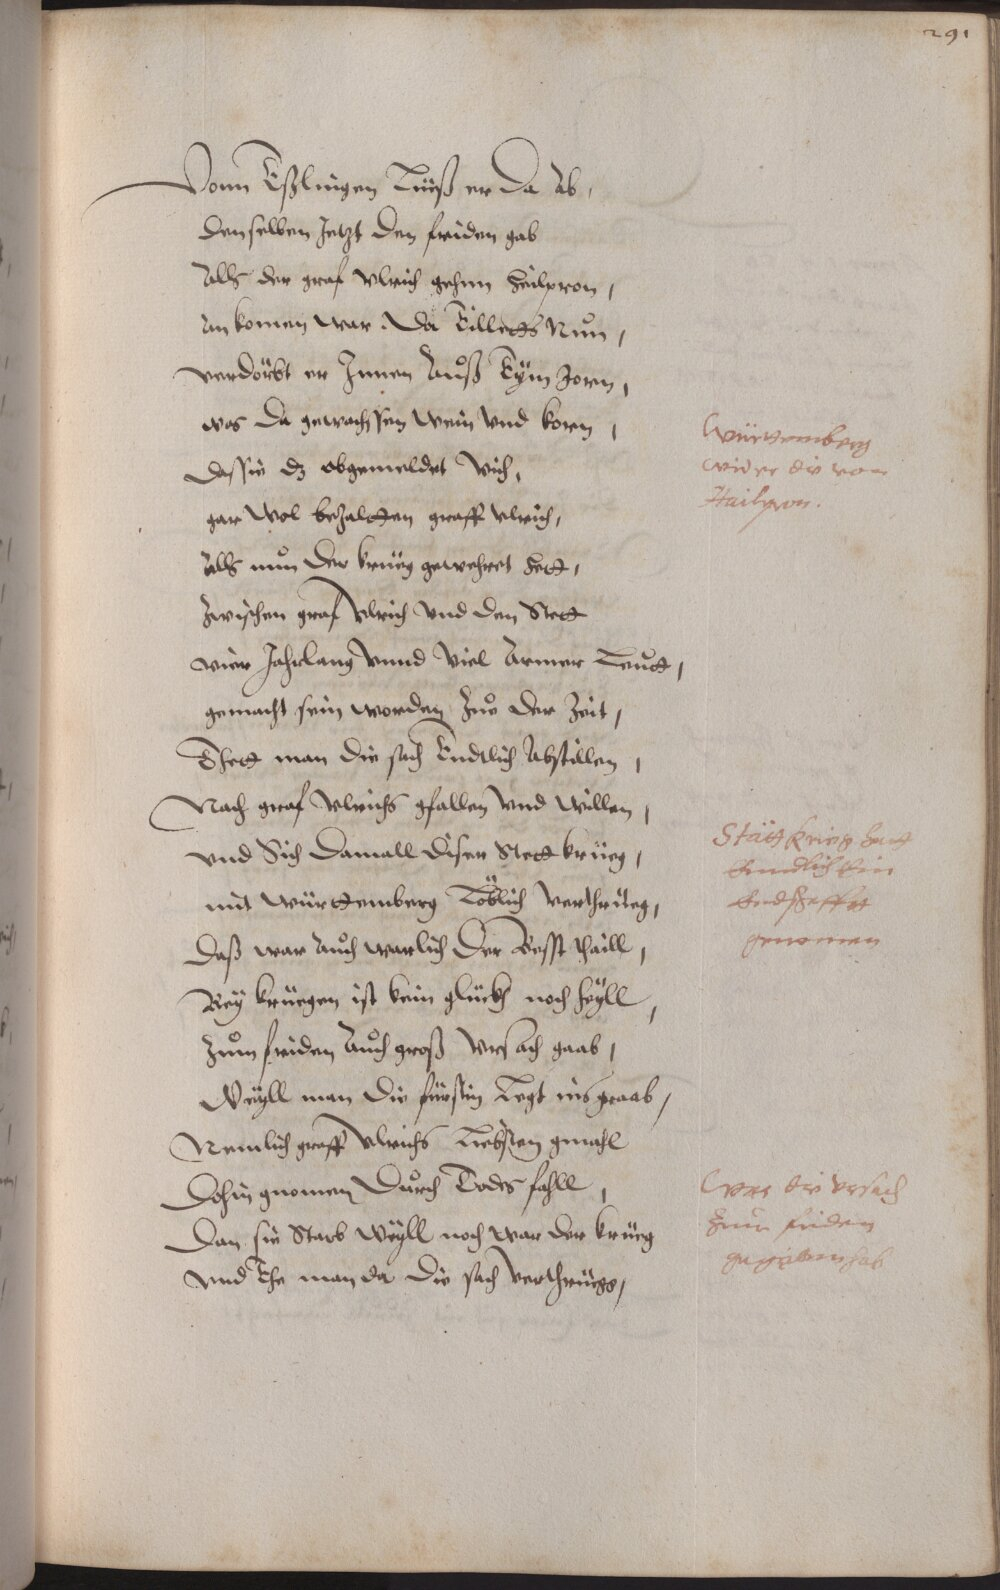 291
Vonn Eßlingen Ließ er da Ab,
denselben Jetzt den friden gab
Alls der graf Vlrich gehnn Heilpron,
An komen war. Da Nůn,
verdörbt er Innen Auß Zorn,
was da gewachssen Wein Vnd korn,
das sie dz obgemeldet Vich,
gar Wol bezaltten graff Vlrich,
Alls nun der krüeg gewehret hett,
Zwischen graf Vlrich Vnd den Stett
vier Jahrlang Vnnd Viel Armer Leutt,
gemacht sein worden Zue der Zeit,
Thett man die sach Endtlich Abstillen,
Nach graf Vlrichs gfallen Vnd Willen,
Vnd Sich Damall diser Stett krüeg,
mit Württemberg Löblich Verthrüeg,
Daß war Auch warlich Der Besst thaill,
Bey krüegen ist kein glückh noch Heyll,
Zum friden Auch groß Vrsach gaab,
Weyll man die fürstin Legt ins graab,
Nemlich graff Vlrichs Liebsten gmahl
Dahin gnomen Durch Todes fahll,
Dan sie Starb Weyll noch war der krüeg
Vnd Ehe man da die sach Verthrüege,
Württemberg
wider die von
Hailpron.
Stätt krieg hatt
Enndtlich Ein
Endtschafft
genomen
Was die Vrsach
Zum friden
gegäben hab